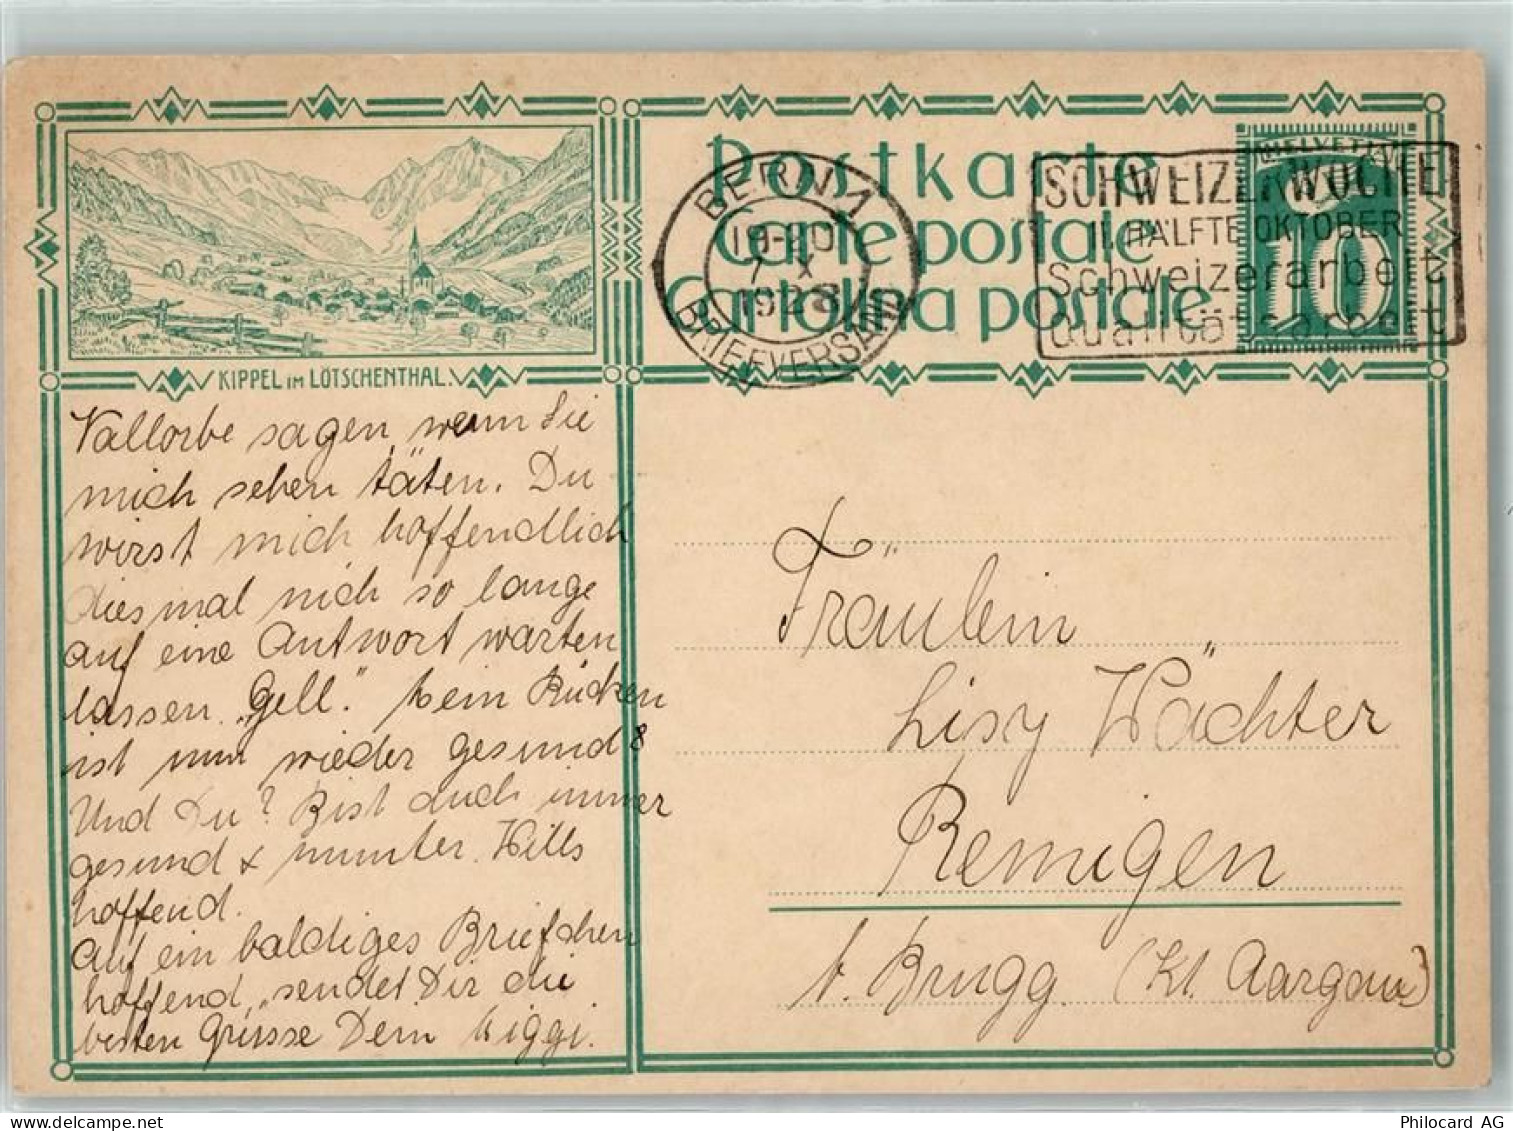 Postkarte
Carte postale
Cartolina postale
HELVETIA
10
BERN 1
19-20
7 X
1928
BRIEFVERSAND
SCHWEIZERWOCHE
II. HÄLFTE OKTOBER
Schweizerarbeit
Qualitätsarbeit
KIPPEL IM LÖTSCHENTHAL.
Vallorbe sagen, wenn Sie
mich sehen täten. Du
wirst mich hoffendlich
diesmal nich so lange
auf eine Antwort warten
lassen. "Gell". Mein Rücken
ist nun wieder gesund
Und Du? Bist auch immer
gesund & munter. Wills
hoffend.
Auf ein baldiges Briefchen
hoffend, sendet Dir die
besten Grüsse Dein
Fräulein
Lisy Wächter
Remigen
b. Brugg. (Kt. Aargau)
Philocard AG